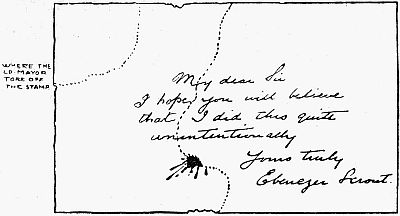 WHERE THE
LD. MAYOR
TORE OFF
THE STAMP.
My dear Sir
I hope you will believe
that I did this quite
unintentionally
Yours truly
Ebenezer Scrout.